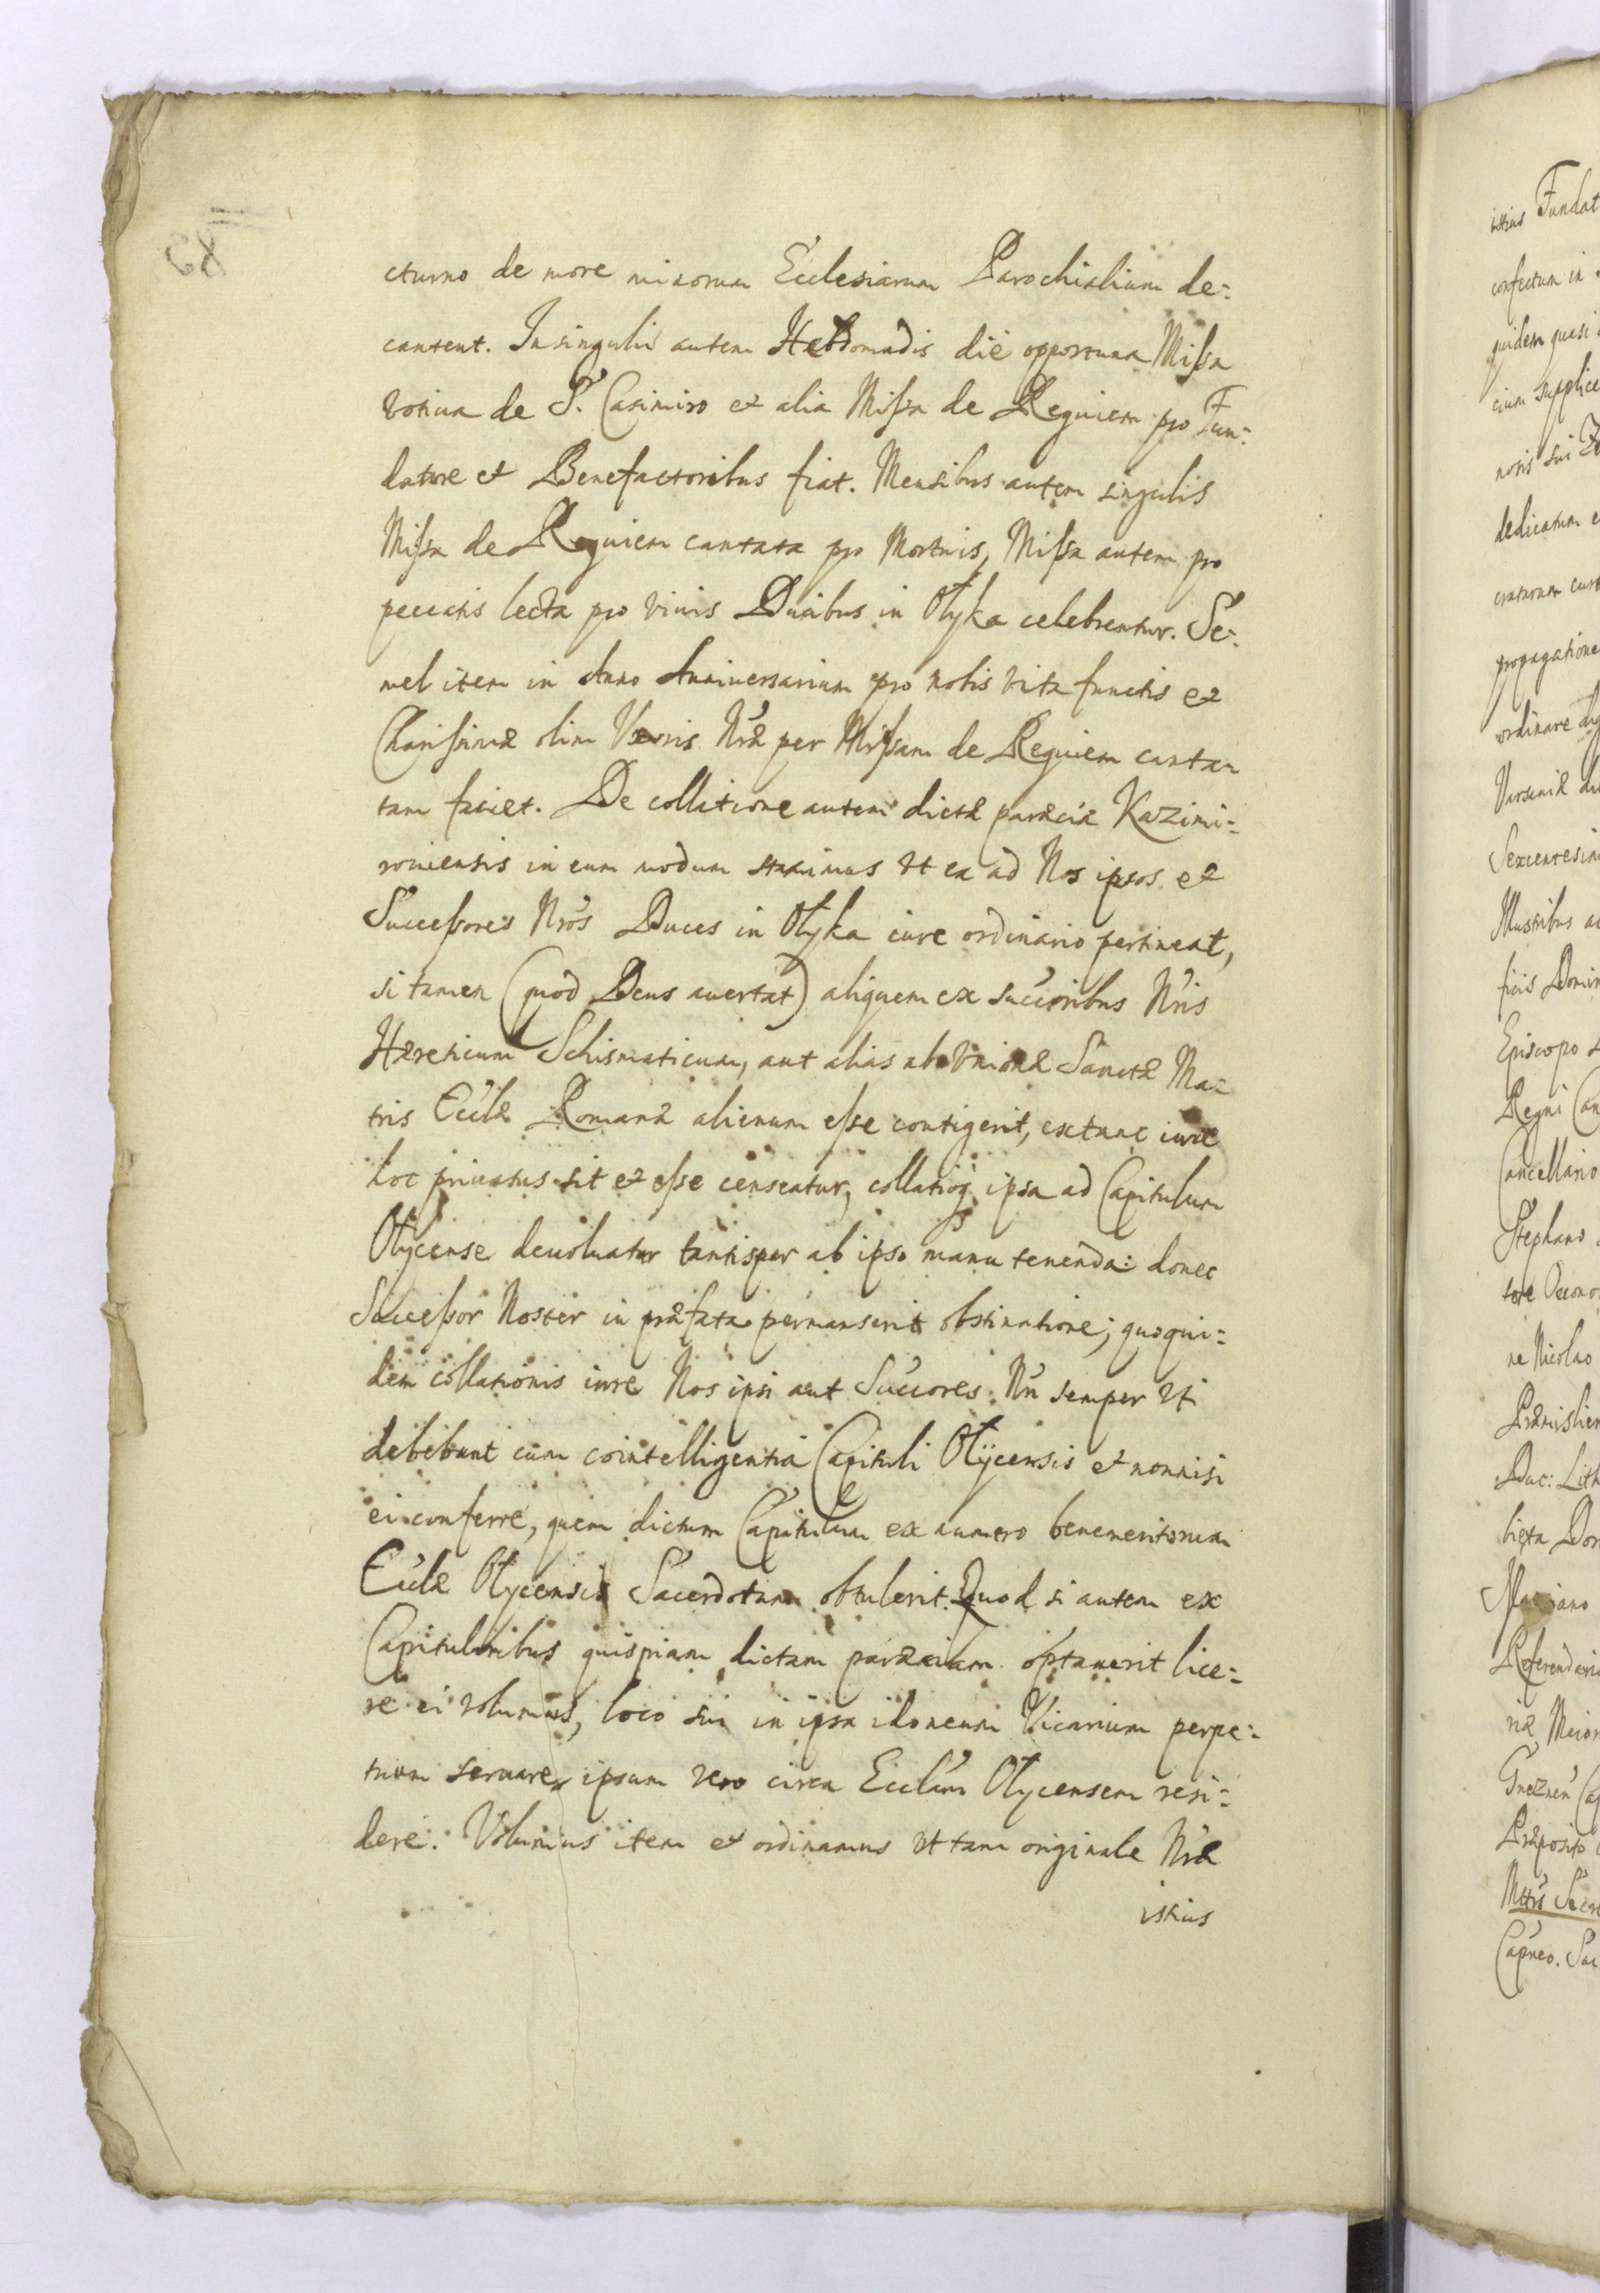 cturno de more minorum Ecclesiarum Parochialium de=
cantent. In singulis autem Hebdomadis die opportuna Missa
votiua de S. Casimiro et alia Missa de Requiem pro Fun=
datore et Benefactoribus fiat. Mensibus autem singulis
Missa de Requiem cantata pro Mortuis, Missa autem pro
peccatis lecta pro viuis Ducibus in Ołyka celebrentur. Se=
mel item in Anno Anniuersarium pro nobis vita functis et
Charissimæ olim Uxoris Nræ per Missam de Requiem canta=
tam faciet. De collatione autem dictæ paræciæ Kazimi=
rouiensis in eum modum statuimus vt ea ad Nos ipsos et
Successores Nros Duces in Ołyka iure ordinario pertineat,
si tamen (quod Deus auertat) aliquem ex succoribus Nris
Hæreticum Schismaticum, aut alias ab Unione Sanctæ Ma=
tris Eccłæ Romanæ alienum esse contigerit, extunc iure
hoc priuatus sit et esse censeatur, collatioq ipsa ad Capitulum
Olycense deuoluatur tantisper ab ipso manu tenenda: donec
Successor Noster in præfata permanserit obstinatione; quo qui=
dem collationis iure Nos ipsi aut Succores Nri semper vti
debebunt cum cointelligentia Capituli Olycensis et nonnisi
ei conferre, quem dictum Capitulum ex numero benemeritorum
Eccłæ Olycensis Sacerdotum obtulerit. Quod si autem ex
Capitularibus quispiam dictam paræciam optauerit lice=
re ei volumus, loco sui in ipsa idoneum Vicarium perpe=
tuum seruare, ipsum vero circa Ecclam Olycensem resi=
dere. Volumus item et ordinamus vt tam originale Nræ
istius
istius Fundat
confectum in
quidem quasi
cium supplice
noris sui
dedicatum e
propagatione
ordinare
Sexcentesim
Illustribus a
Episcopo
Regni Can
Cancellario
Stephano
tore Oecono
ne Nicolao
Præmislien
Duc: Lith
Referendari
Gneznen Ca
Præposito